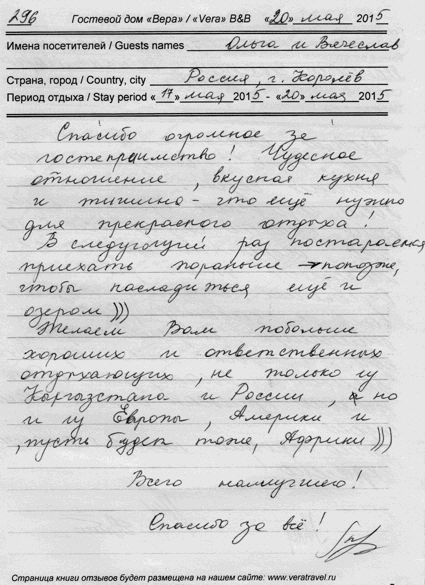 296 Гостевой дом «Вера» / «Vera» B&B «20» мая 2015
Имена посетителей / Guests names Ольга и Вячеслав
Страна, город / Country, city Россия, г. Королёв
Период отдыха / Stay period «17» мая 2015 - «20» мая 2015
Спасибо огромное за
гостеприимство! Чудесное
отношение, вкусная кухня
и тишина - что ещё нужно
для прекрасного отдыха!
В следующий раз постараемся
приехать пораньше → попозже,
чтобы насладиться ещё и
озером)))
Желаем Вам побольше
хороших и ответственных
отдыхающих, не только из
Кыргызстана и России, но
и из Европы, Америки и
, пусть будет тоже, Африки)))
Всего наилучшего!
Спасибо за всё!
Страница книги отзывов будет размещена на нашем сайте: www.veratravel.ru